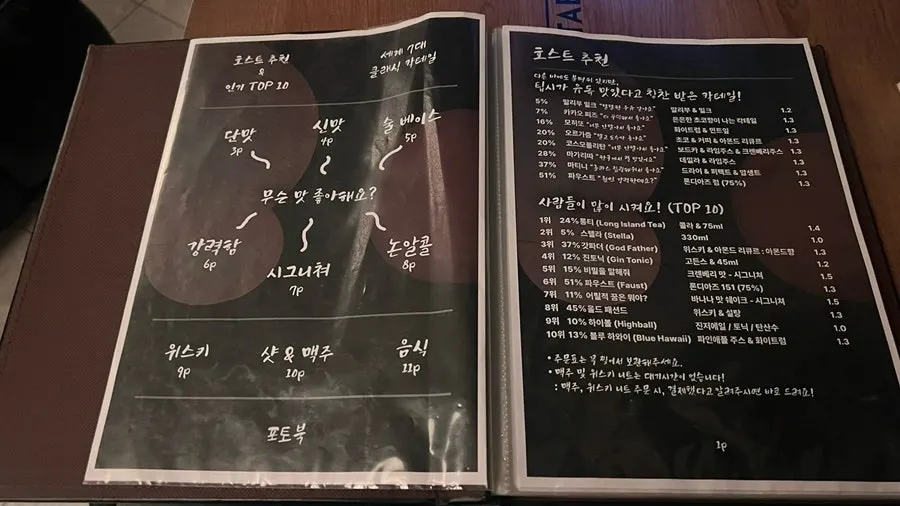 TAB
호스트 추천
&
인기 TOP 10
세계 7대
클래식 칵테일
단맛
3p
신맛
4p
술 베이스
5p
무슨 맛 좋아해요?
강력함
6p
시그니쳐
7p
논알콜
8p
위스키
9p
샷 & 맥주
10p
음식
11p
포토북
호스트 추천
다른 바에도 분명히 있지만,
팁시가 유독 맛있다고 칭찬 받은 칵테일!
5% 말리부 밀크 말리부 & 밀크 1.2
7% 카카오 피즈 은은한 초코향이 나는 칵테일 1.3
16% 모히또 화이트럼 & 민트잎 1.3
20% 오르가즘 초코 & 커피 & 아몬드 리큐르 1.3
20% 코스모폴리탄 보드카 & 라임주스 & 크렌베리주스 1.3
28% 마가리따 데낄라 & 라임주스 1.3
37% 마티니 드라이 & 퍼펙트 & 압생트 1.3
51% 파우스트 론디아즈 럼 (75%) 1.3
사람들이 많이 시켜요! (TOP 10)
1위 24% 롱티 (Long Island Tea) 콜라 & 75ml 1.4
2위 5% 스텔라 (Stella) 330ml 1.0
3위 37% 갓파더 (God Father) 위스키 & 아몬드 리큐르 : 아몬드향 1.3
4위 12% 진토닉 (Gin Tonic) 고든스 & 45ml 1.2
5위 15% 비밀을 말해줘 크렌베리 맛 - 시그니쳐 1.5
6위 51% 파우스트 (Faust) 론디아즈 151 (75%) 1.3
7위 11% 어릴적 꿈은 뭐야? 바나나 맛 쉐이크 - 시그니쳐 1.5
8위 45% 올드 패션드 위스키 & 설탕 1.3
9위 10% 하이볼 (Highball) 진저에일 / 토닉 / 탄산수 1.0
10위 13% 블루 하와이 (Blue Hawaii) 파인애플 주스 & 화이트럼 1.3
• 주문표는 꼭 찢어서 보관해주세요.
• 맥주 및 위스키 니트는 대기시간이 없습니다!
: 맥주, 위스키 니트 주문 시, 결제했다고 알려주시면 바로 드려요!
1p